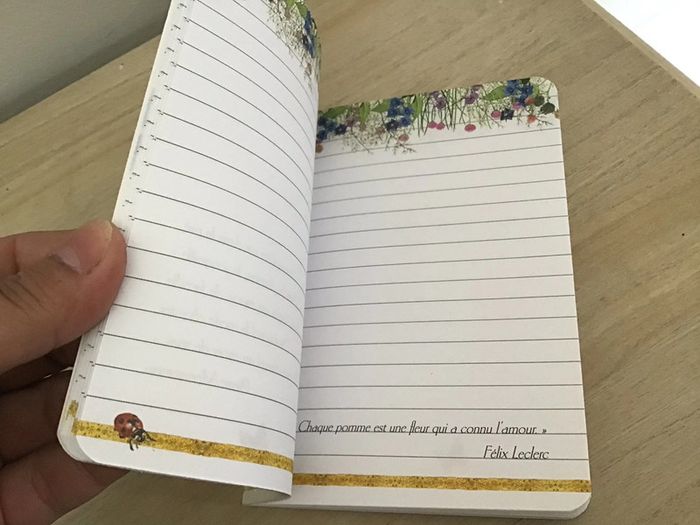 Chaque pomme est une fleur qui a connu l'amour. »
Félix Leclerc